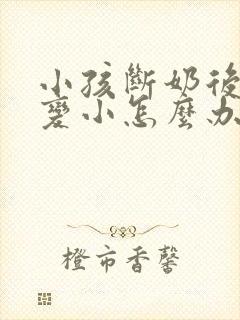 小孩斷奶後
變小怎麼办
橙市香馨